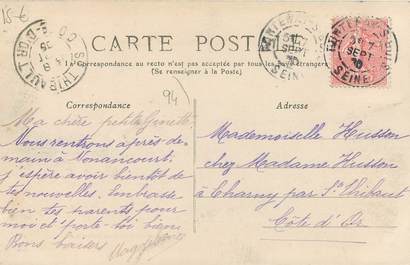 15-€
CARTE POSTALE
La Correspondance au recto n'est pas acceptée par tous les pays étrangers
(Se renseigner à la Poste)
Correspondance
94
Adresse
Ma chère petite Ginette
Nous rentrons après-de-
main à Nonancourt,
j'espère avoir bientôt de
tes nouvelles. Embrasse
bien tes parents pour
moi et porte-toi bien
Bons baisers
Mademoiselle Husson
chez Madame Husson
à Charny par St Thibaut
Côte d'Or
ST THIBAULT
CÔTE D'OR
SEPT
SEINE
SEPT
SEINE